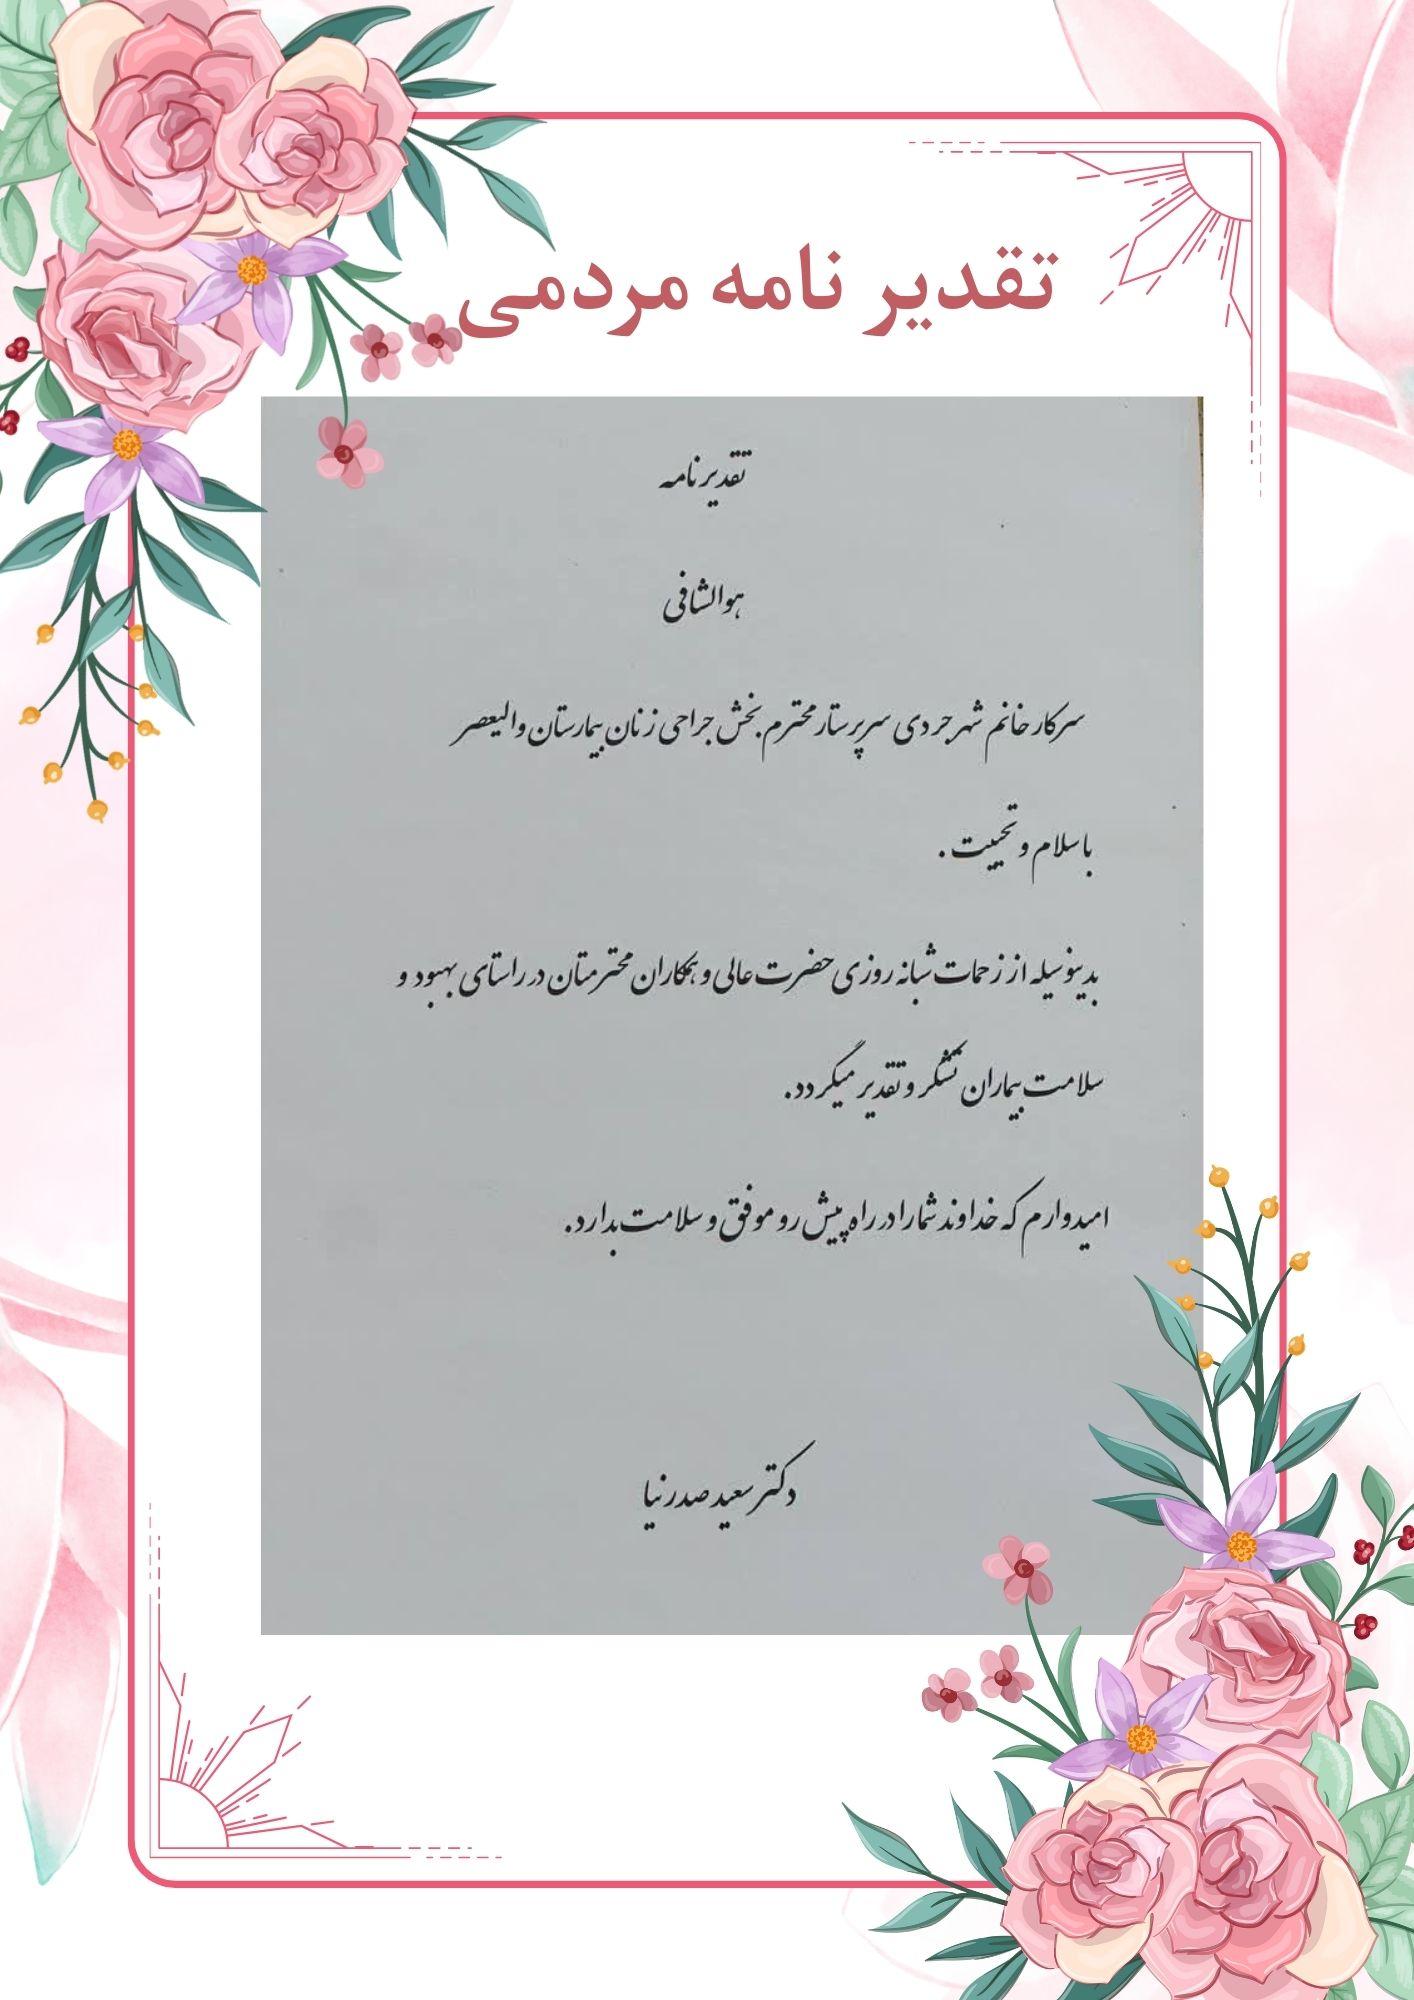 تقدیر نامه مردمی
تقدیرنامه
هوالشافی
سرکار خانم شهرجردی سرپرستار محترم بخش جراحی زنان بیمارستان والیعصر
با سلام و تحییت .
بدینوسیله از زحمات شبانه روزی حضرت عالی و همکاران محترمتان در راستای بهبود و
سلامت بیماران تشکر و تقدیر میگردد.
امیدوارم که خداوند شما را در راه پیش رو موفق و سلامت بدارد.
دکتر سعید صدرنیا